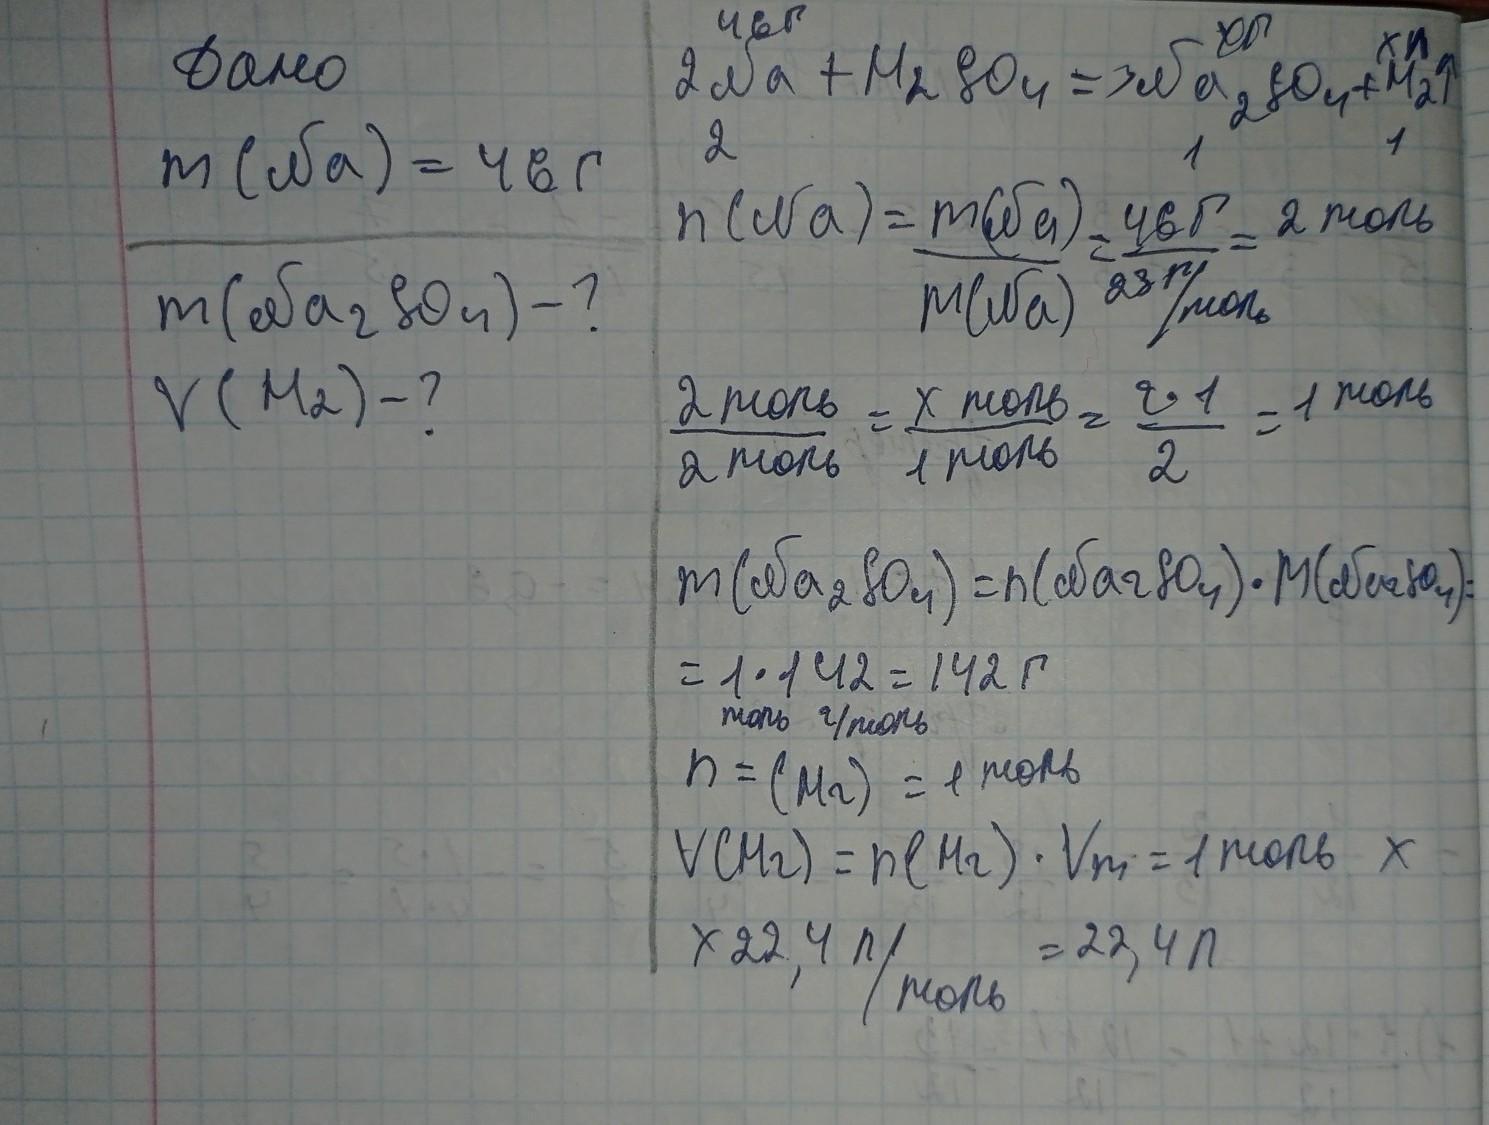 Дано
m(Na) = 46г
m(Na2SO4) - ?
V(H2) - ?
46г xг xл
2Na + H2SO4 => Na2SO4 + H2↑
2 1 1
n(Na) = m(Na) / m(Na) = 46г / 23г/моль = 2 моль
2 моль / 2 моль = x моль / 1 моль = 2·1 / 2 = 1 моль
m(Na2SO4) = n(Na2SO4)·M(Na2SO4) =
= 1·142 = 142г
моль г/моль
n = (H2) = 1 моль
V(H2) = n(H2)·Vm = 1 моль x
x 22,4 л/моль = 22,4 л